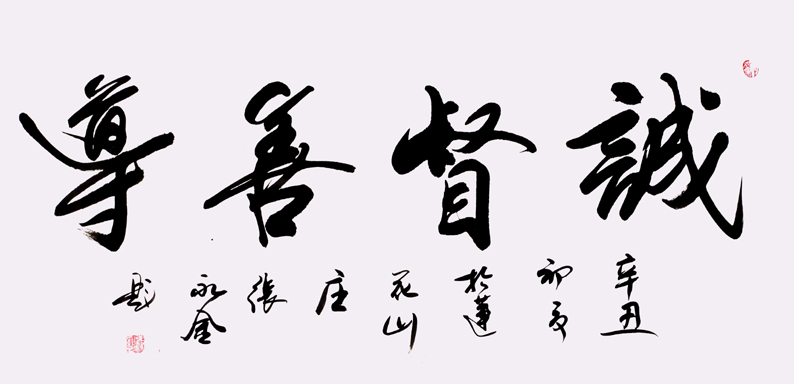 誠督善導
辛丑初夏於蓮花山庄張永金